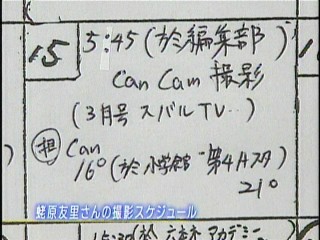 15
5:45 (於編集部)
CanCam 撮影
(3月号 スバルTV…)
担 Can
16° (於 小学館 第4Aスタ
21°
蛯原友里さんの撮影スケジュール
15:30 (於 六本木 アカデミー